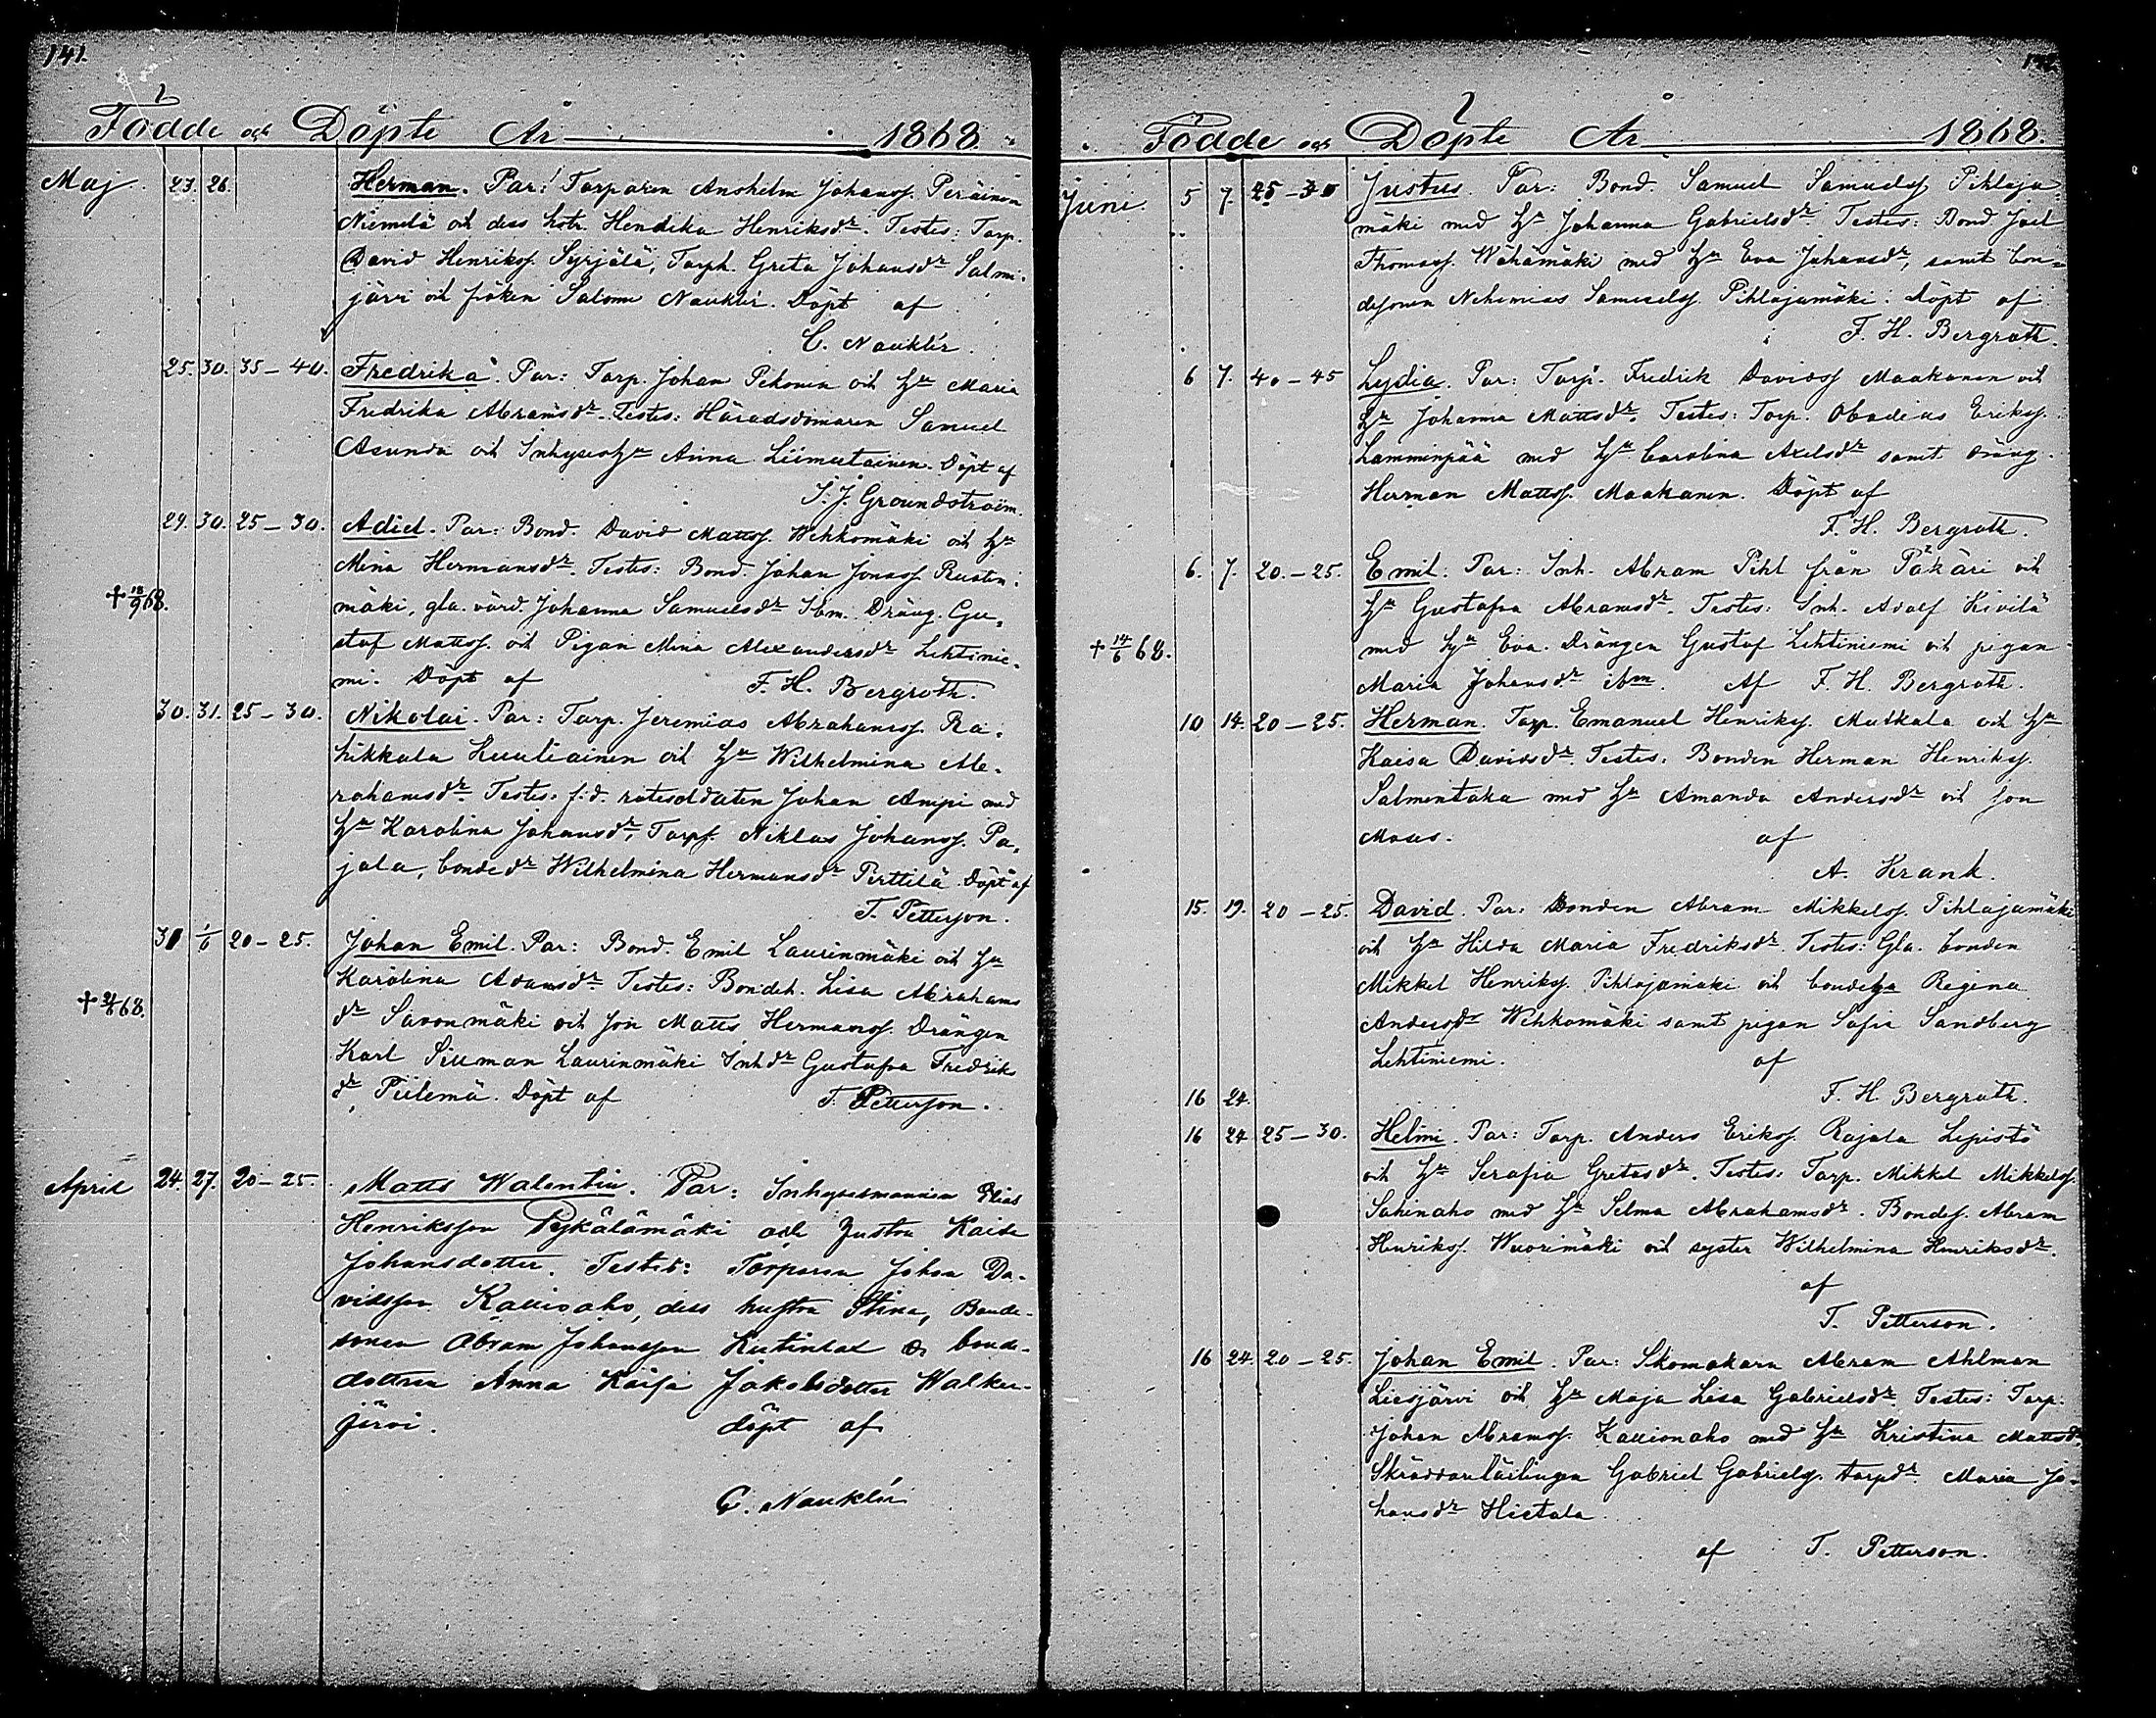 141.
Födde och Döpte År 1868.
Maj. 23. 26. Herman. Par: Torparen Anshelm Johanss. Peräinen
Niemelä och dess hstr. Hendika Henriksdr. Testes: Torp.
David Henrikss. Syrjälä, Torph. Greta Johansdr Salmi-
järvi och fröken Salome Nauklér. Döpt af
C. Nauklér.
25. 30. 35-40. Fredrika. Par: Torp. Johan Pekonen och Hu Maria
Fredrika Abramsdr. Testes: Häradsdomaren Samuel
Asunda och Inhyses Hu Anna Liimatainen. Döpt af
J. J. Groundstroem.
29. 30. 25-30. Adiel. Par: Bond. David Mattss. Wehkomäki och Hu
Mina Hermansdr. Testes: Bond. Johan Jonass. Rustin-
† 18/9 68. mäki, gla. värd. Johanna Samuelsdr Ibm. Dräng. Gu-
staf Mattss. och Pigan Mina Alexandersdr Lehtinie-
mi. Döpt af F. H. Bergroth.
30. 31. 25-30. Nikolai. Par: Torp. Jeremias Abrahamss. Ra-
hikkala Luuliainen och Hu Wilhelmina Ab-
rahamsdr. Testes: f.d. rotesoldaten Johan Ampi med
Hu Karolina Johansdr, Torps. Niklas Johanss. Pa-
jala, bondedr Wilhelmina Hermansdr Perttilä. Döpt af
T. Petterson.
31 1/6 20-25. Johan Emil. Par: Bond. Emil Laurinmäki och Hu
Karolina Adamsdr Testes: Bondeh. Lisa Abrahams
68. dr Savonmäki och son Matts Hermanss. Drängen
Karl Sillman Laurinmäki Inhdr Gustafva Fredriks
dr Piilemä. Döpt af T. Petterson.
April 24. 27. 20-25. Matts Walentin. Par: Inhysesmannen Elias
Henriksson Pejkälämäki och hustru Kaisa
Johansdotter. Testes: Torparen Johan Da-
vidsson Kallioaho, dess hustru Stina, Bonde-
sonen Abram Johansson Kutinlax & bonde-
dottren Anna Kaisa Jakobsdotter Walker-
järvi. döpt af
C. Nauklér
Födde och Döpte År 1868.
Juni. 5 7. 25-30 Justus Par: Bond. Samuel Samuelss Pihlaja-
mäki med Hu Johanna Gabrielsdr Testes: Bond Joel
Thomass. Wähämäki med Hu Eva Johansdr, samt bon-
desonen Nehemias Samuelss Pihlajamäki. Döpt af
F. H. Bergroth.
6 7. 40-45 Lydia. Par: Torp. Fredrik Davidss Maakanen och
Hu Johanna Mattsdr. Testes: Torp. Obadias Erikss.
Lamminpää med Hu Carolina Axelsdr samt dräng.
Herman Mattss. Maakanen. Döpt af
F. H. Bergroth.
6. 7. 20.-25. Emil. Par: Inh. Abram Pihl från Päkäri och
Hu Gustafva Abramsdr. Testes: Inh. Adolf Kivilä
† 14/6 68. med Hu Eva. Drängen Gustaf Lehtiniemi och pigan
Maria Johansdr ibm. Af F. H. Bergroth.
10 14. 20-25. Herman. Torp. Emanuel Henrikss. Mutkala och Hu
Kaisa Davidsdr. Testes: Bonden Herman Henrikss.
Salmentaka med Hu Amanda Andersdr och son
Moses. af
A. Krank.
15. 19. 20-25. David. Par: Bonden Abram Mikkelss. Pihlajamäki
och Hu Hilda Maria Fredriksdr. Testes: Gla. bonden
Mikkel Henrikss. Pihlajamäki och bondehu Regina
Andersdr Wehkomäki samt pigan Sofia Sandberg
Lehtiniemi. af
16 24. F. H. Bergroth.
16 24 25-30. Helmi. Par: Torp. Anders Erikss. Rajala Lepistö
och Hu Serafia Gretasdr. Testes: Torp. Mikkel Mikkelss.
Sahinaho med Hu Selma Abrahamsdr. Bondes. Abram
Henrikss. Wuorimäki och syster Wilhelmina Henriksdr.
af
T. Petterson.
16 24. 20-25. Johan Emil. Par: Skomakarn Abram Ahlman
Liesjärvi och Hu Maja Lisa Gabrielsdr. Testes: Torp.
Johan Abramss. Kallionaho med Hu Kristina Mattsdr.
Skräddarlärlingen Gabriel Gabrielss. torpdr Maria Jo-
hansdr Hietala.
af T. Petterson.